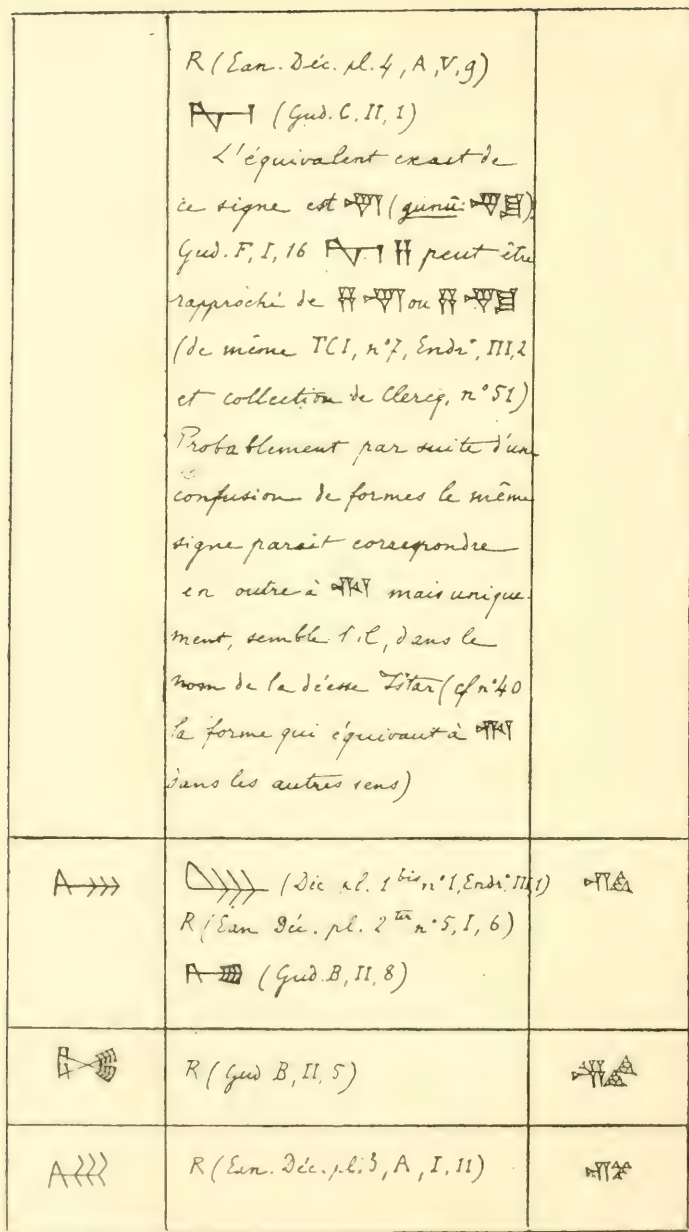 R (Ean. Déc. pl. 4, A, V, 9)
(Gud. C, II, 1)
L'équivalent exact de
ce signe est (gunû: )
Gud. F, I, 16 peut être
rapproché de ou
(de même TCI, n°7, Endr., III, 2
et collection de Clercq, n°51)
Probablement par suite d'un
confusion de formes le même
signe parait correspondre
en outre à mais unique-
ment, semble-t-il, dans le
nom de la déesse Ištar (cf n°40
la forme qui équivaut à
dans les autres sens)
(Déc pl. 1 bis n°1, Endr. III, 1)
R (Ean Déc. pl. 2 ter n°5, I, 6)
(Gud. B, II, 8)
R (Gud B, II, 5)
R (Ean. Déc. pl. 3, A, I, 11)